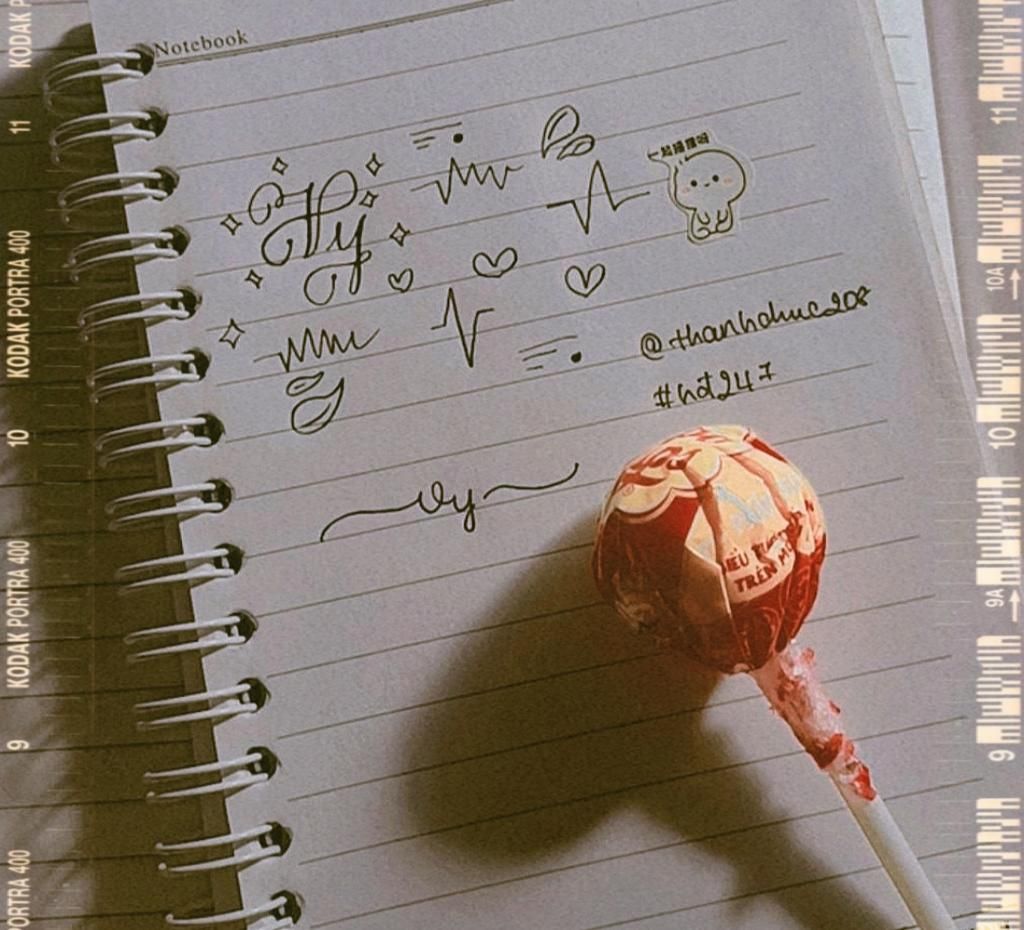 Notebook
Vy
@thanhdhuc208
#hđ247
Vy
IỀU
TRÊN
KODAK PORTRA 400
KODAK PORTRA 400
PORTRA 400
KODAK P
11
10
9
11
10A
10
9A
9